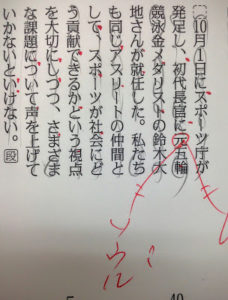 10月1日にスポーツ庁が
発足し、初代長官に元五輪
競泳金メダリストの鈴木大
地さんが就任した。私たち
も同じアスリートの仲間と
して、スポーツが社会にど
う貢献できるかという視点
を大切にしつつ、さまざま
な課題について声を上げて
いかないといけない。段